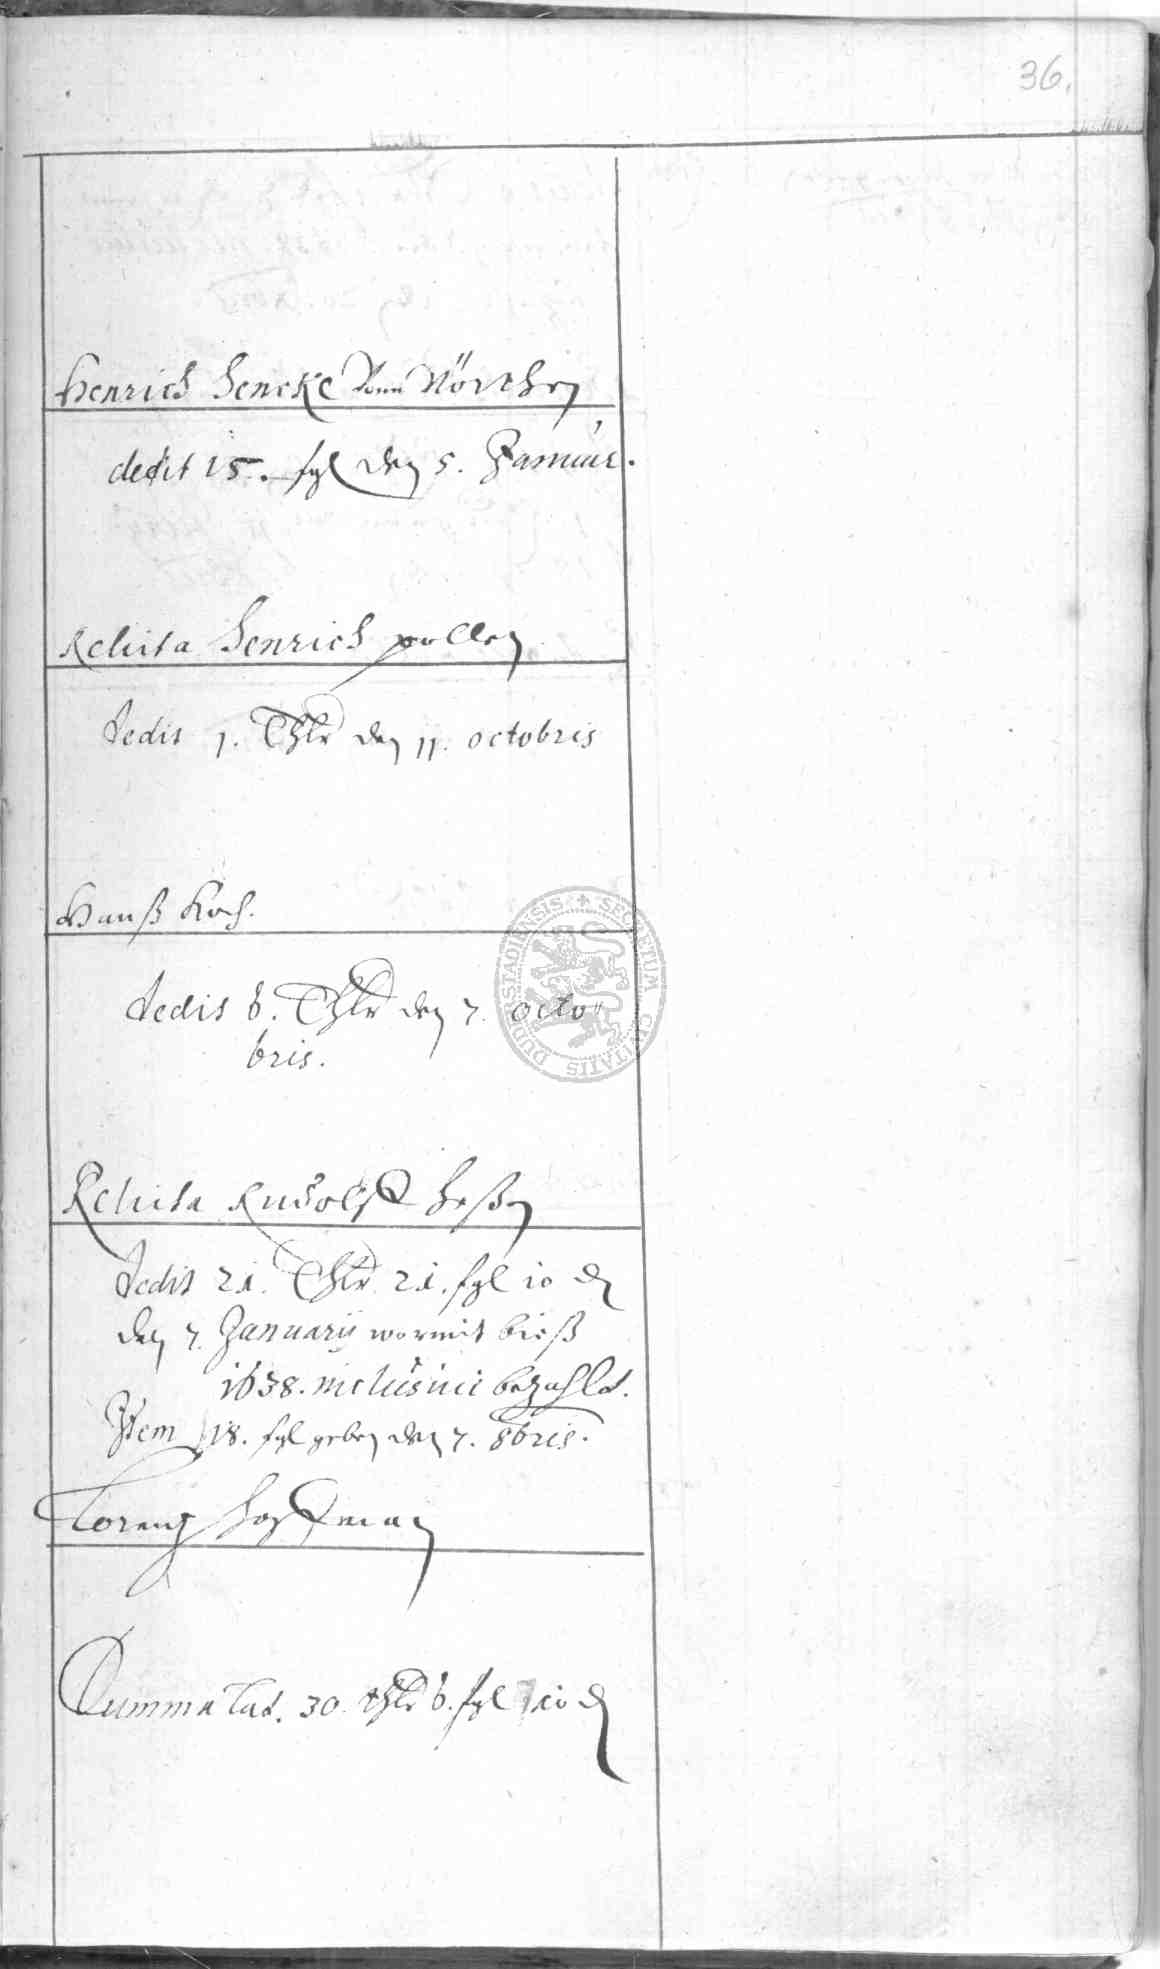 36.
Henrich Hencke Vonn Nörthen
dedit 15. fgl den 5. Januar.
Relicta Henrich pollen
dedit 1. Thlr den 11. octobris
Hanß Koch.
dedit 6. Thlr den 7. octo
bris.
Relicta Rudolff Heßen
dedit 21. Thlr 21. fgl 10 d
den 7. January wormit bieß
1638. inclusiue bezahlet.
Item 18. fgl geben den 7. 8bris.
Lorentz Hoffman
Summa Lat. 30. thlr 6. fgl 10 d
SECRETUM CIVITATIS DUDERSTADIENSIS